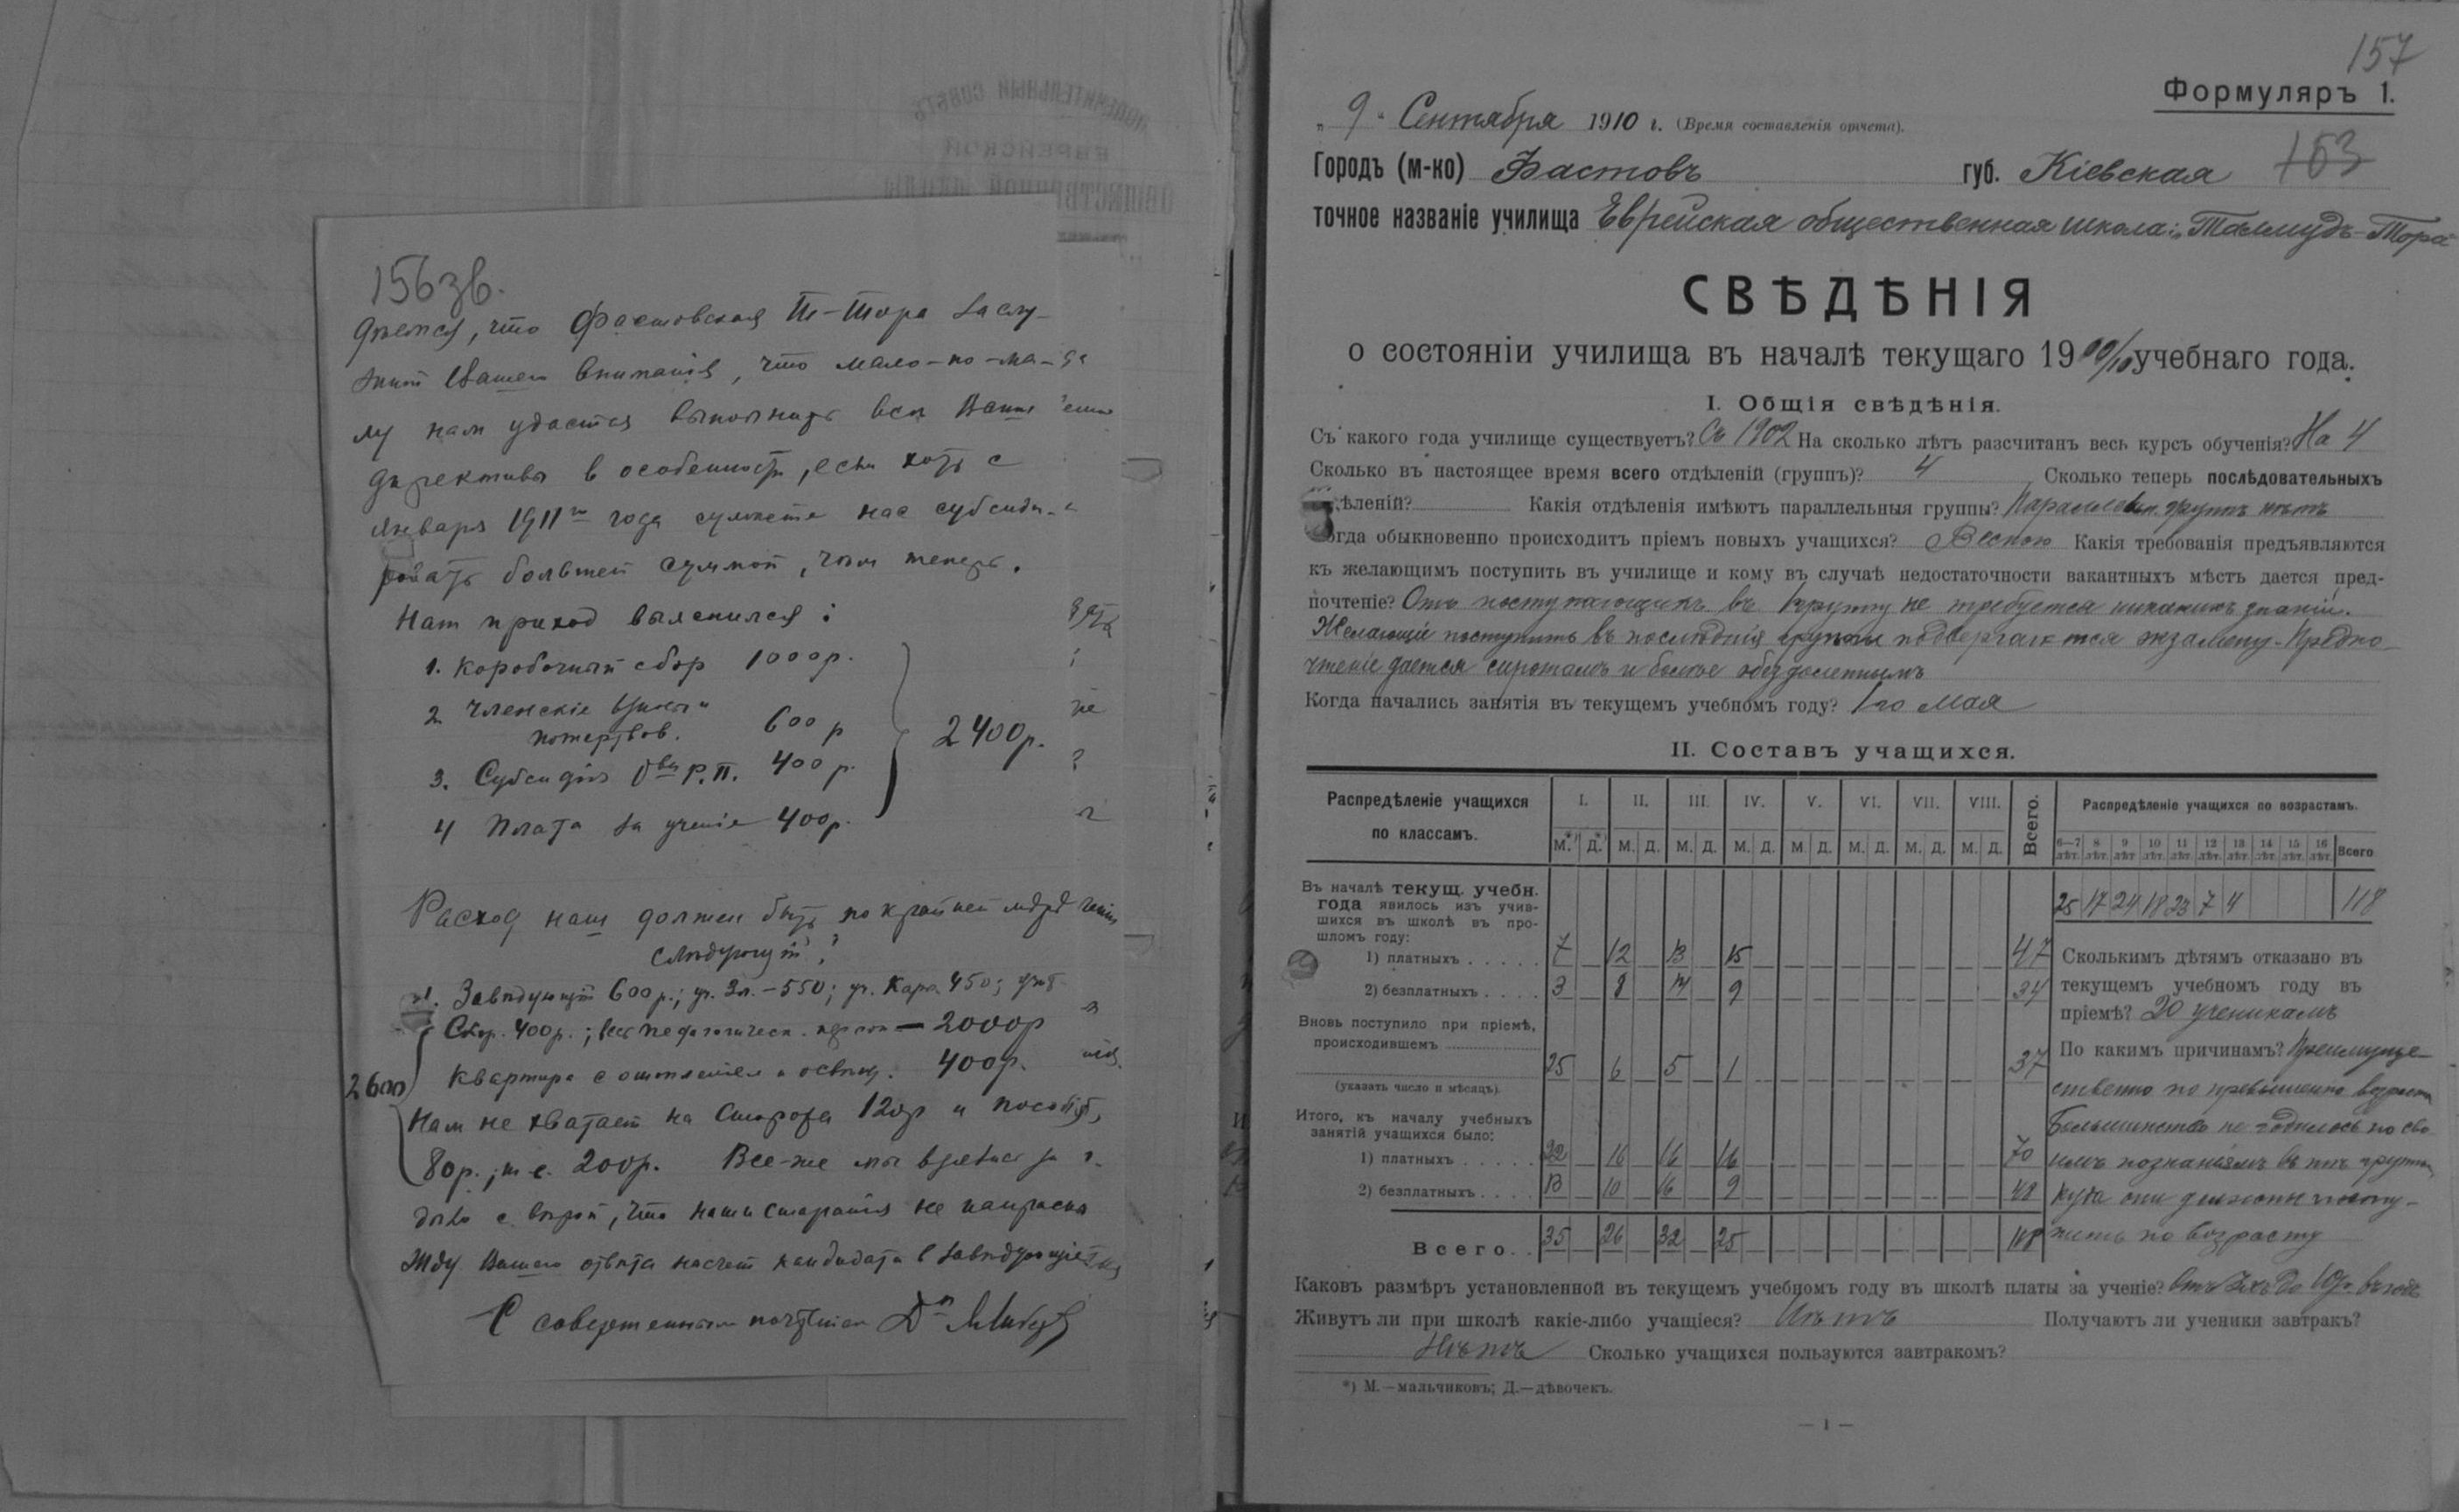 156 зв.
что Фастовская Т-Тора заслу-
жит Вашего вниманія, что мало-по-ма-
лу нам удастся выполнить все Ваши
директивы в особенности, если хоть с
января 1911го года сумеете нас субсиди-
ровать большей суммой, чем теперь.
Наш приход выяснился:
1. Коробочный сбор 1000р.
2. Членскіе взносы и
пожертвов. 600 р
3. Субсидія Обва Р.П. 400 р.
2400р.
4 Плата за ученіе 400р.
Расход наш должен быть по крайней мере
следующій:
1. Заведующій 600 р.; уч. Зл. – 550; уч. Карл. 450;
400р.; весь педагогическ. – 2000р
Квартира с отопленіем и освещ. 400р.
2600
Нам не хватает на Сторожа 120р и
80р., т. е. 200р. Все-же мы взялись за
дело с верой, что наши старанія не напрасны
Жду Вашего ответа насчет кандидата в заведующіе
С совершенным почтеніем Др
157
Формуляръ 1.
„ 9 “ Сентября 1910 г. (Время составленія отчета).
Городъ (м-ко) Фастовъ губ. Кіевская 153
точное названіе училища Еврейская общественная школа: „Талмудъ-Тора“
СВѢДѢНІЯ
о состояніи училища въ началѣ текущаго 1909/10 учебнаго года.
I. Общія свѣдѣнія.
Съ какого года училище существуетъ? Съ 1902 На сколько лѣтъ разсчитанъ весь курсъ обученія? На 4
Сколько въ настоящее время всего отдѣленій (группъ)? 4 Сколько теперь послѣдовательныхъ
дѣленій? Какія отдѣленія имѣютъ параллельныя группы? Параллельн. группъ нѣтъ
Когда обыкновенно происходитъ пріемъ новыхъ учащихся? Весною Какія требованія предъявляются
къ желающимъ поступить въ училище и кому въ случаѣ недостаточности вакантныхъ мѣстъ дается пред-
почтеніе? Отъ поступающихъ въ I группу не требуется никакихъ знаній.
Желающіе поступить въ послѣднія группы подвергаются экзамену. Предпо-
чтеніе дается сиротамъ и болѣе обездоленнымъ
Когда начались занятія въ текущемъ учебномъ году? 1го Мая
II. Составъ учащихся.
Распредѣленіе учащихся по классамъ. I. II. III. IV. V. VI. VII. VIII. Всего. Распредѣленіе учащихся по возрастамъ.
М.*) Д.*) М. Д. М. Д. М. Д. М. Д. М. Д. М. Д. М. Д.
6—7 лѣт. 8 лѣт. 9 лѣт. 10 лѣт. 11 лѣт. 12 лѣт. 13 лѣт. 14 лѣт. 15 лѣт. 16 лѣт. Всего
25 17 24 18 23 7 4 118
Въ началѣ текущ. учебн.
года явилось изъ учив-
шихся въ школѣ въ про-
шломъ году:
1) платныхъ . . . . . 7 — 12 — 13 — 15 — — — — — — — — — 47
2) безплатныхъ . . . . 3 — 8 — 14 — 9 — — — — — — — — — 34
Вновь поступило при пріемѣ,
происходившемъ
25 — 6 — 5 — 1 — — — — — — — — — 37
(указать число и мѣсяцъ).
Итого, къ началу учебныхъ
занятій учащихся было:
1) платныхъ . . . . . 22 — 16 — 16 — 16 — — — — — — — — — 70
2) безплатныхъ . . . . 13 — 10 — 16 — 9 — — — — — — — — — 48
Всего. . 35 — 26 — 32 — 25 — — — — — — — — — 118
Сколькимъ дѣтямъ отказано въ
текущемъ учебномъ году въ
пріемѣ? 20 ученикамъ
По какимъ причинамъ? Преимуще-
ственно по превышенію возраста
Большинство не годилось по сво-
имъ познаніямъ въ тѣ группы
куда они должны посту-
пить по возрасту
Каковъ размѣръ установленной въ текущемъ учебномъ году въ школѣ платы за ученіе? до 10р. въ годъ
Живутъ ли при школѣ какіе-либо учащіеся? Нѣтъ Получаютъ ли ученики завтракъ?
Нѣтъ Сколько учащихся пользуются завтракомъ?
*) М.—мальчиковъ; Д.—дѣвочекъ.
— 1 —